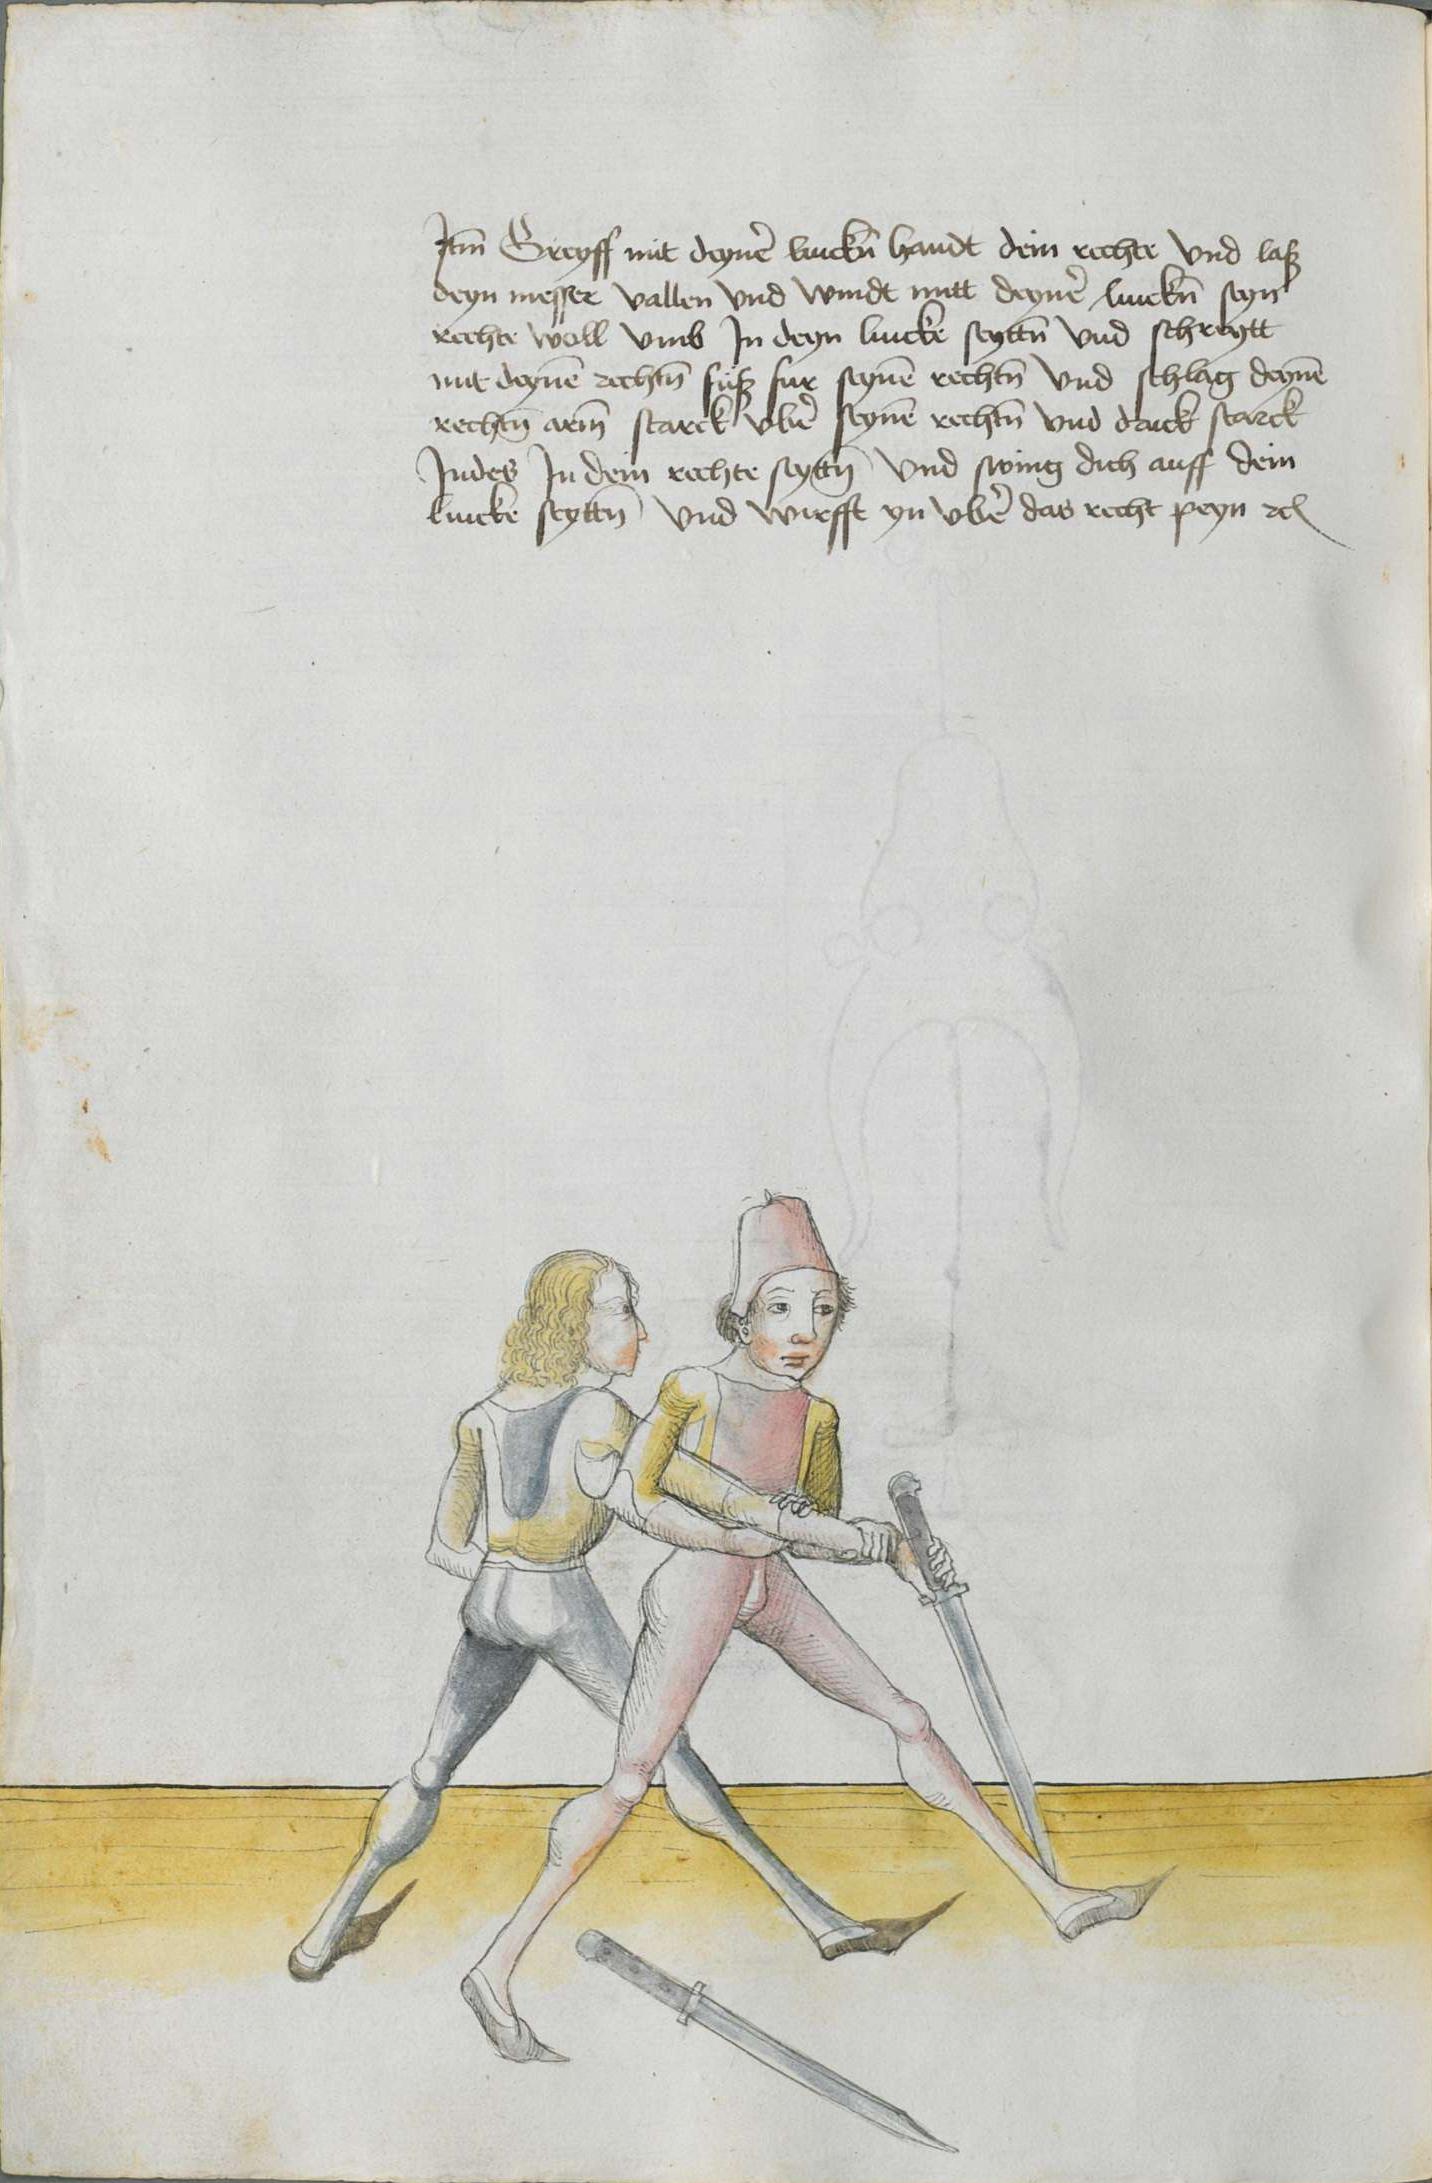 Jtm̄ Greyff mit deyne᷑ linckn̄ handt dein rechte vnd laß
deyn messer vallen vnd windt mitt deyne᷑ linckn̄ seyn
rechte woll vmb Jn deyn lincke seyttn̄ vnd schreytt
mit deynē rechtn̄ fuß fur seynē rechtn̄ vnd schlag deynē
rechtn̄ arm̄ starck vbe᷑ seynē rechtn̄ vnd druck starck
Jndes Jn dein rechte seyttn̄ vnd swing dich auff dein
lincke seyttn̄ vnd wirfft yn vbe᷑ das recht peyn ꝛc